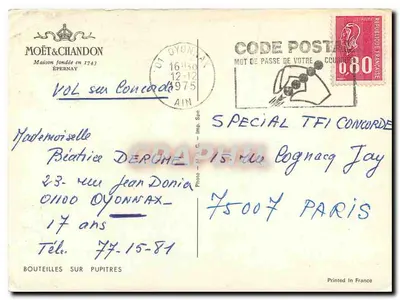 MOËT & CHANDON
Maison fondée en 1743
ÉPERNAY
VOL sur Concorde
01 OYONNAX
16H30
12-12
1975
AIN
CODE POSTAL
MOT DE PASSE DE VOTRE COURRIER
0,80
REPUBLIQUE FRANCAISE
Mademoiselle
Béatrice
23 - rue Jean
01100 OYONNAX
17 ans
Tél. 77-15-81
SPECIAL TFI CONCORDE
15 rue Cognacq Jay
75007 PARIS
BOUTEILLES SUR PUPITRES
Printed in France